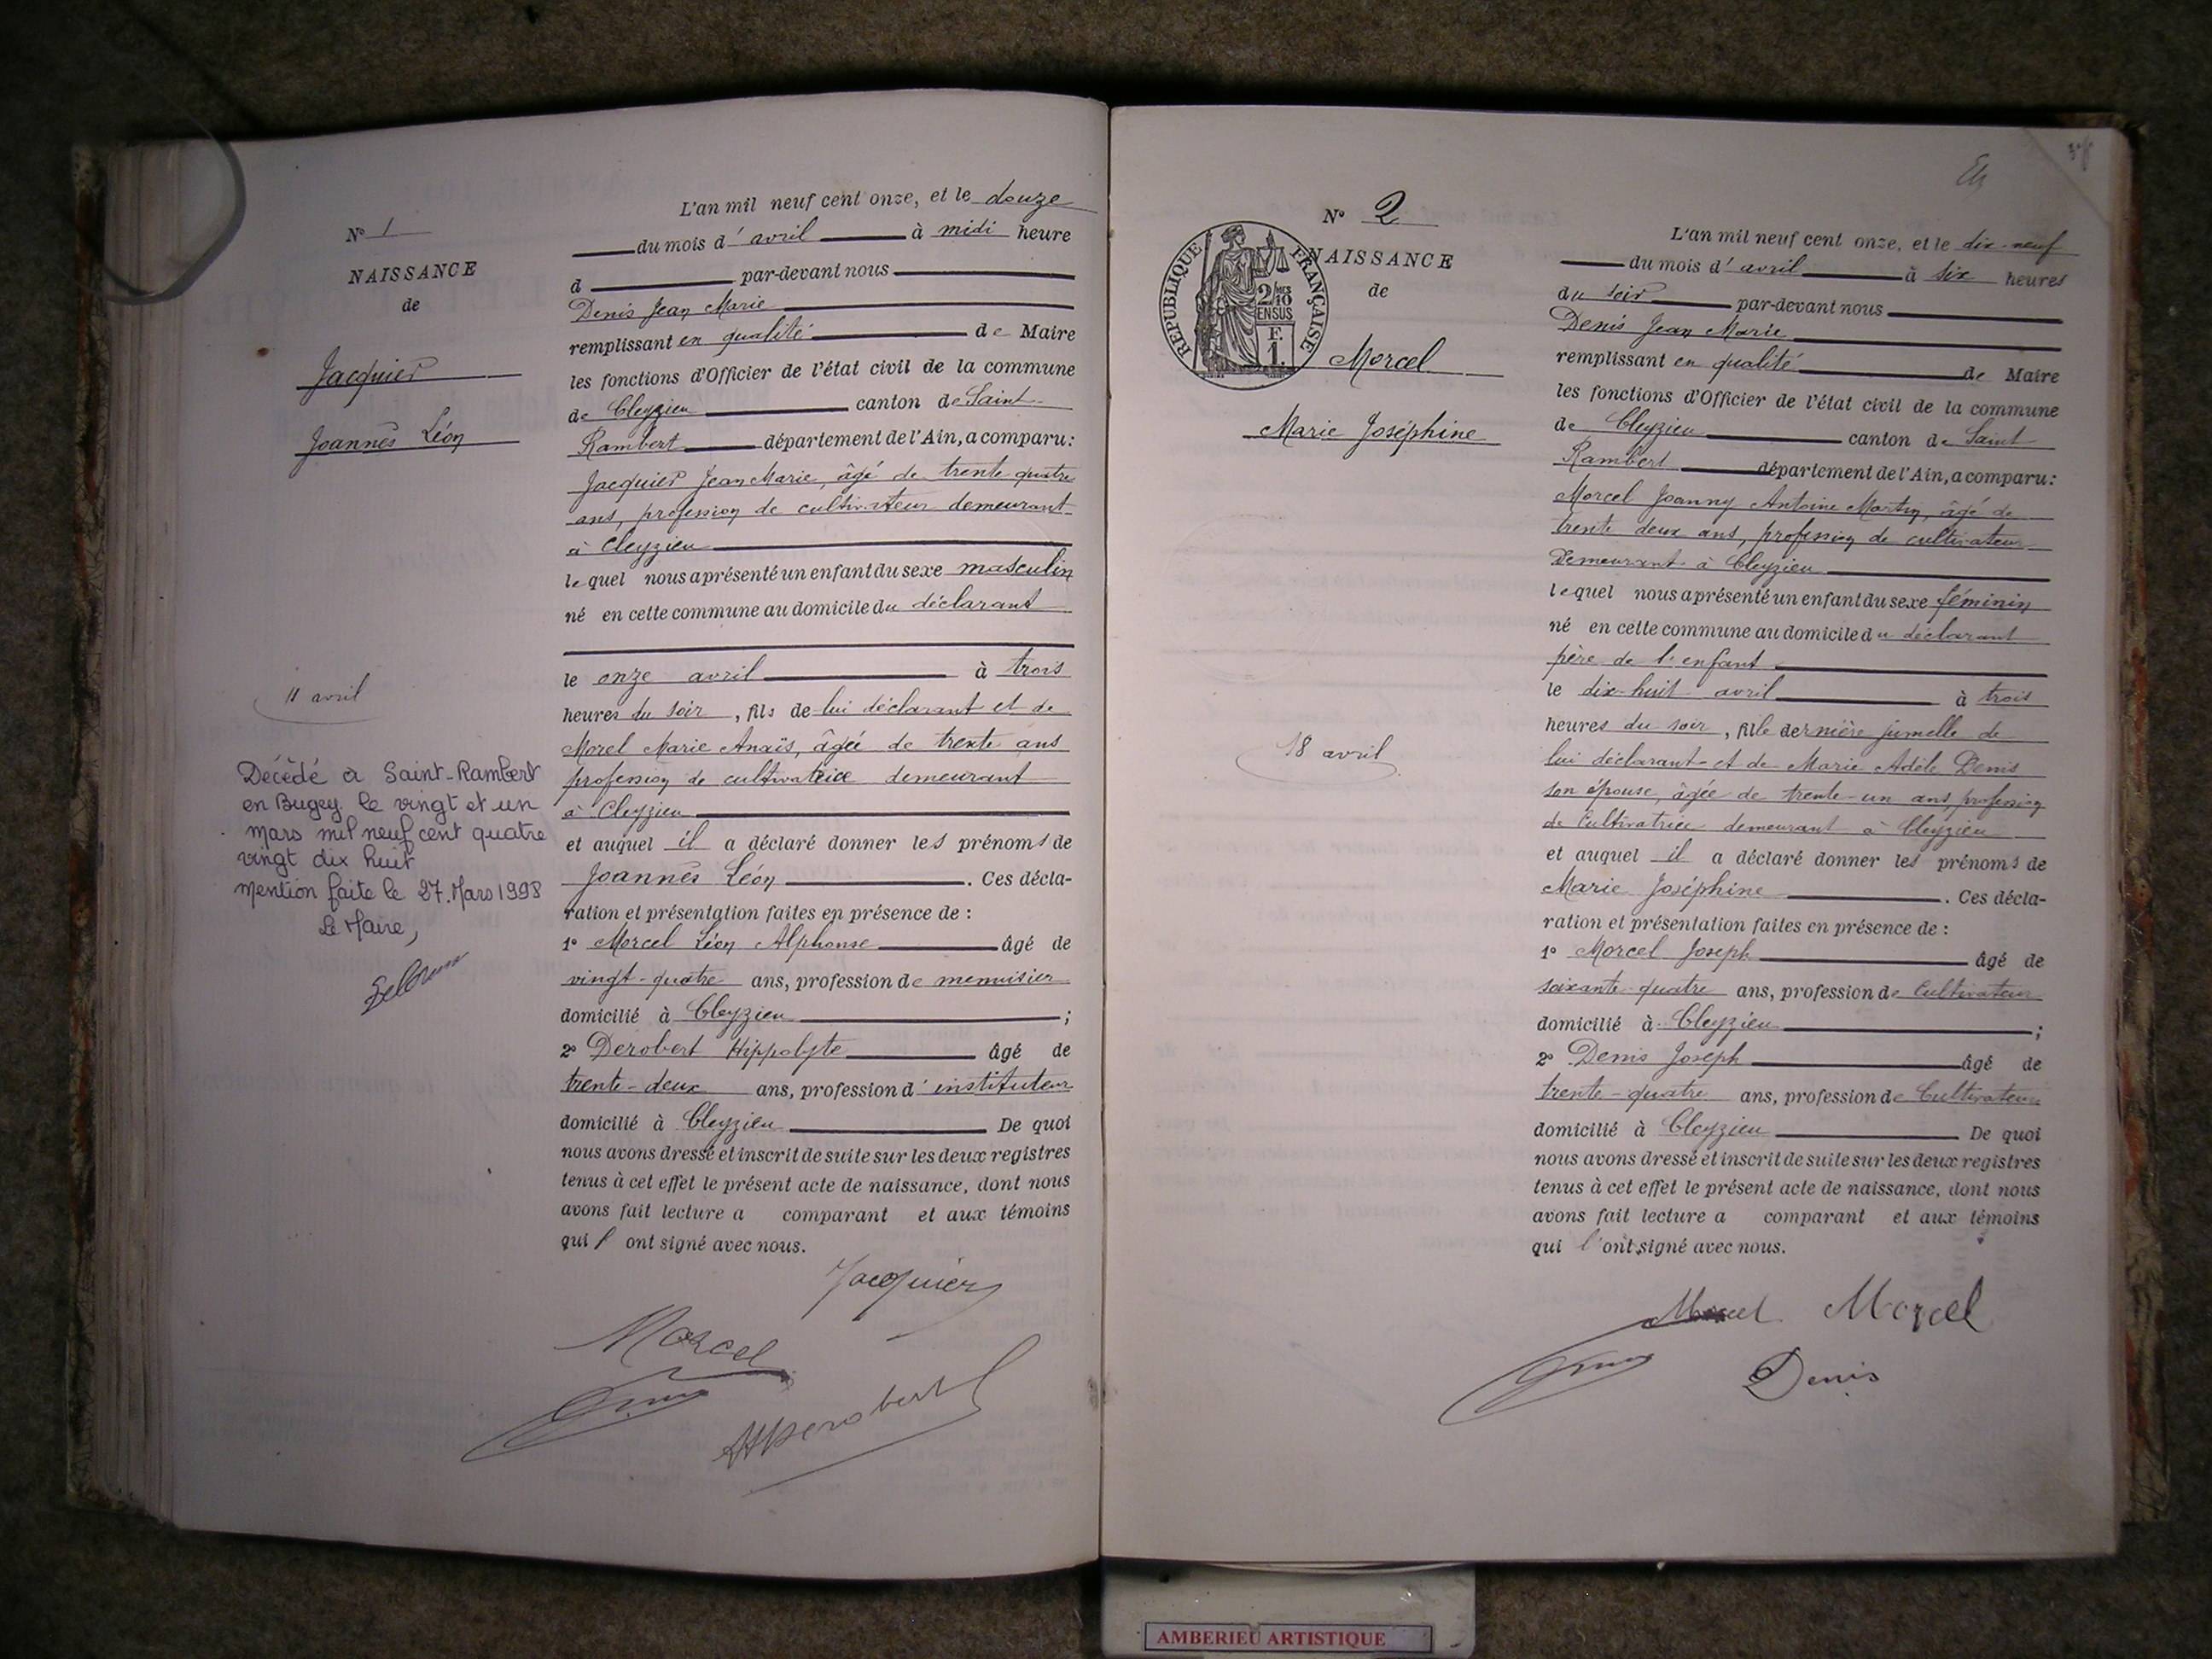 N° 1
NAISSANCE
de
Jacquier
Joannès Léon
11 avril
Décédé à Saint-Rambert
en Bugey le vingt et un
mars mil neuf cent quatre
vingt dix huit
Mention faite le 27 Mars 1998
Le Maire,
L'an mil neuf cent onze, et le douze
du mois d'avril à midi heure
d par-devant nous
Denis Jean Marie
remplissant en qualité de Maire
les fonctions d'Officier de l'état civil de la commune
de Cleyzieu canton de Saint
Rambert département de l'Ain, a comparu:
Jacquier Jean Marie, âgé de trente quatre
ans, profession de cultivateur demeurant
à Cleyzieu
lequel nous a présenté un enfant du sexe masculin
né en cette commune au domicile du déclarant
le onze avril à trois
heures du soir, fils de lui déclarant et de
Morel Marie Anaïs, âgée de trente ans
profession de cultivatrice demeurant
à Cleyzieu
et auquel il a déclaré donner les prénoms de
Joannès Léon. Ces décla-
ration et présentation faites en présence de :
1° Morcel Léon Alphonse âgé de
vingt-quatre ans, profession de menuisier
domicilié à Cleyzieu ;
2° Derobert Hippolyte âgé de
trente-deux ans, profession d'instituteur
domicilié à Cleyzieu De quoi
nous avons dressé et inscrit de suite sur les deux registres
tenus à cet effet le présent acte de naissance, dont nous
avons fait lecture a comparant et aux témoins
qui l'ont signé avec nous.
Jacquier
Morcel
HDerobert
N° 2
NAISSANCE
de
RÉPUBLIQUE FRANÇAISE
2/10 MES
EN SUS
F.
1.
Morcel
Marie Joséphine
18 avril
L'an mil neuf cent onze, et le dix-neuf
du mois d'avril à six heures
du soir par-devant nous
Denis Jean Marie
remplissant en qualité de Maire
les fonctions d'Officier de l'état civil de la commune
de Cleyzieu canton de Saint
Rambert département de l'Ain, a comparu:
Morcel Joanny Antoine Martin, âgé de
trente deux ans, profession de cultivateur
Demeurant à Cleyzieu
lequel nous a présenté un enfant du sexe féminin
né en cette commune au domicile du déclarant
père de l'enfant
le dix-huit avril à trois
heures du soir, fille dernière jumelle de
lui déclarant et de Marie Adèle Denis
son épouse, âgée de trente-un ans, profession
de Cultivatrice demeurant à Cleyzieu
et auquel il a déclaré donner les prénoms de
Marie Joséphine. Ces décla-
ration et présentation faites en présence de :
1° Morcel Joseph âgé de
soixante-quatre ans, profession de Cultivateur
domicilié à Cleyzieu ;
2° Denis Joseph âgé de
trente-quatre ans, profession de Cultivateur
domicilié à Cleyzieu De quoi
nous avons dressé et inscrit de suite sur les deux registres
tenus à cet effet le présent acte de naissance, dont nous
avons fait lecture a comparant et aux témoins
qui l'ont signé avec nous.
Morcel Morcel
Denis
AMBERIEU ARTISTIQUE